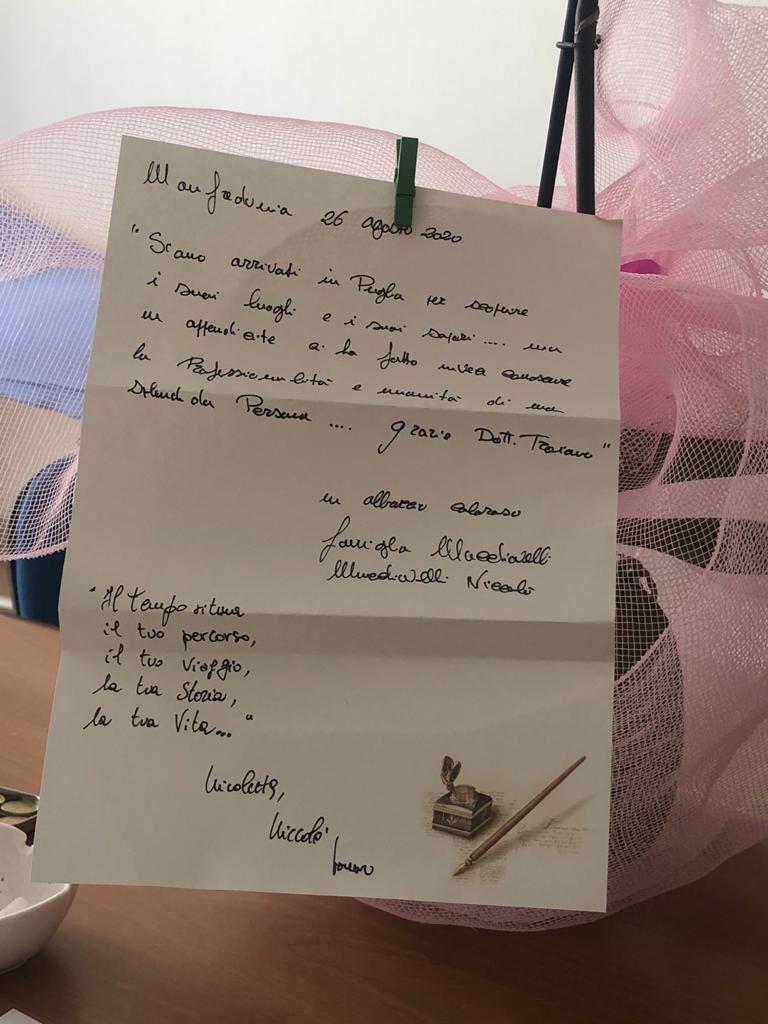 Manfredonia 26 agosto 2020
"Siamo arrivati in Puglia per scoprire
i suoi luoghi e i suoi sapori .... ma
un appendicite ci ha fatto invece conoscere
la Professionalità e umanità di una
splendida Persona .... grazie Dott. Troiano"
un abbraccio caloroso
famiglia Macchiavelli
Macchiavelli Niccolò
"Il tempo
il tuo percorso,
il tuo Viaggio,
la tua Storia,
la tua Vita..."
Nicoletta,
Niccolò